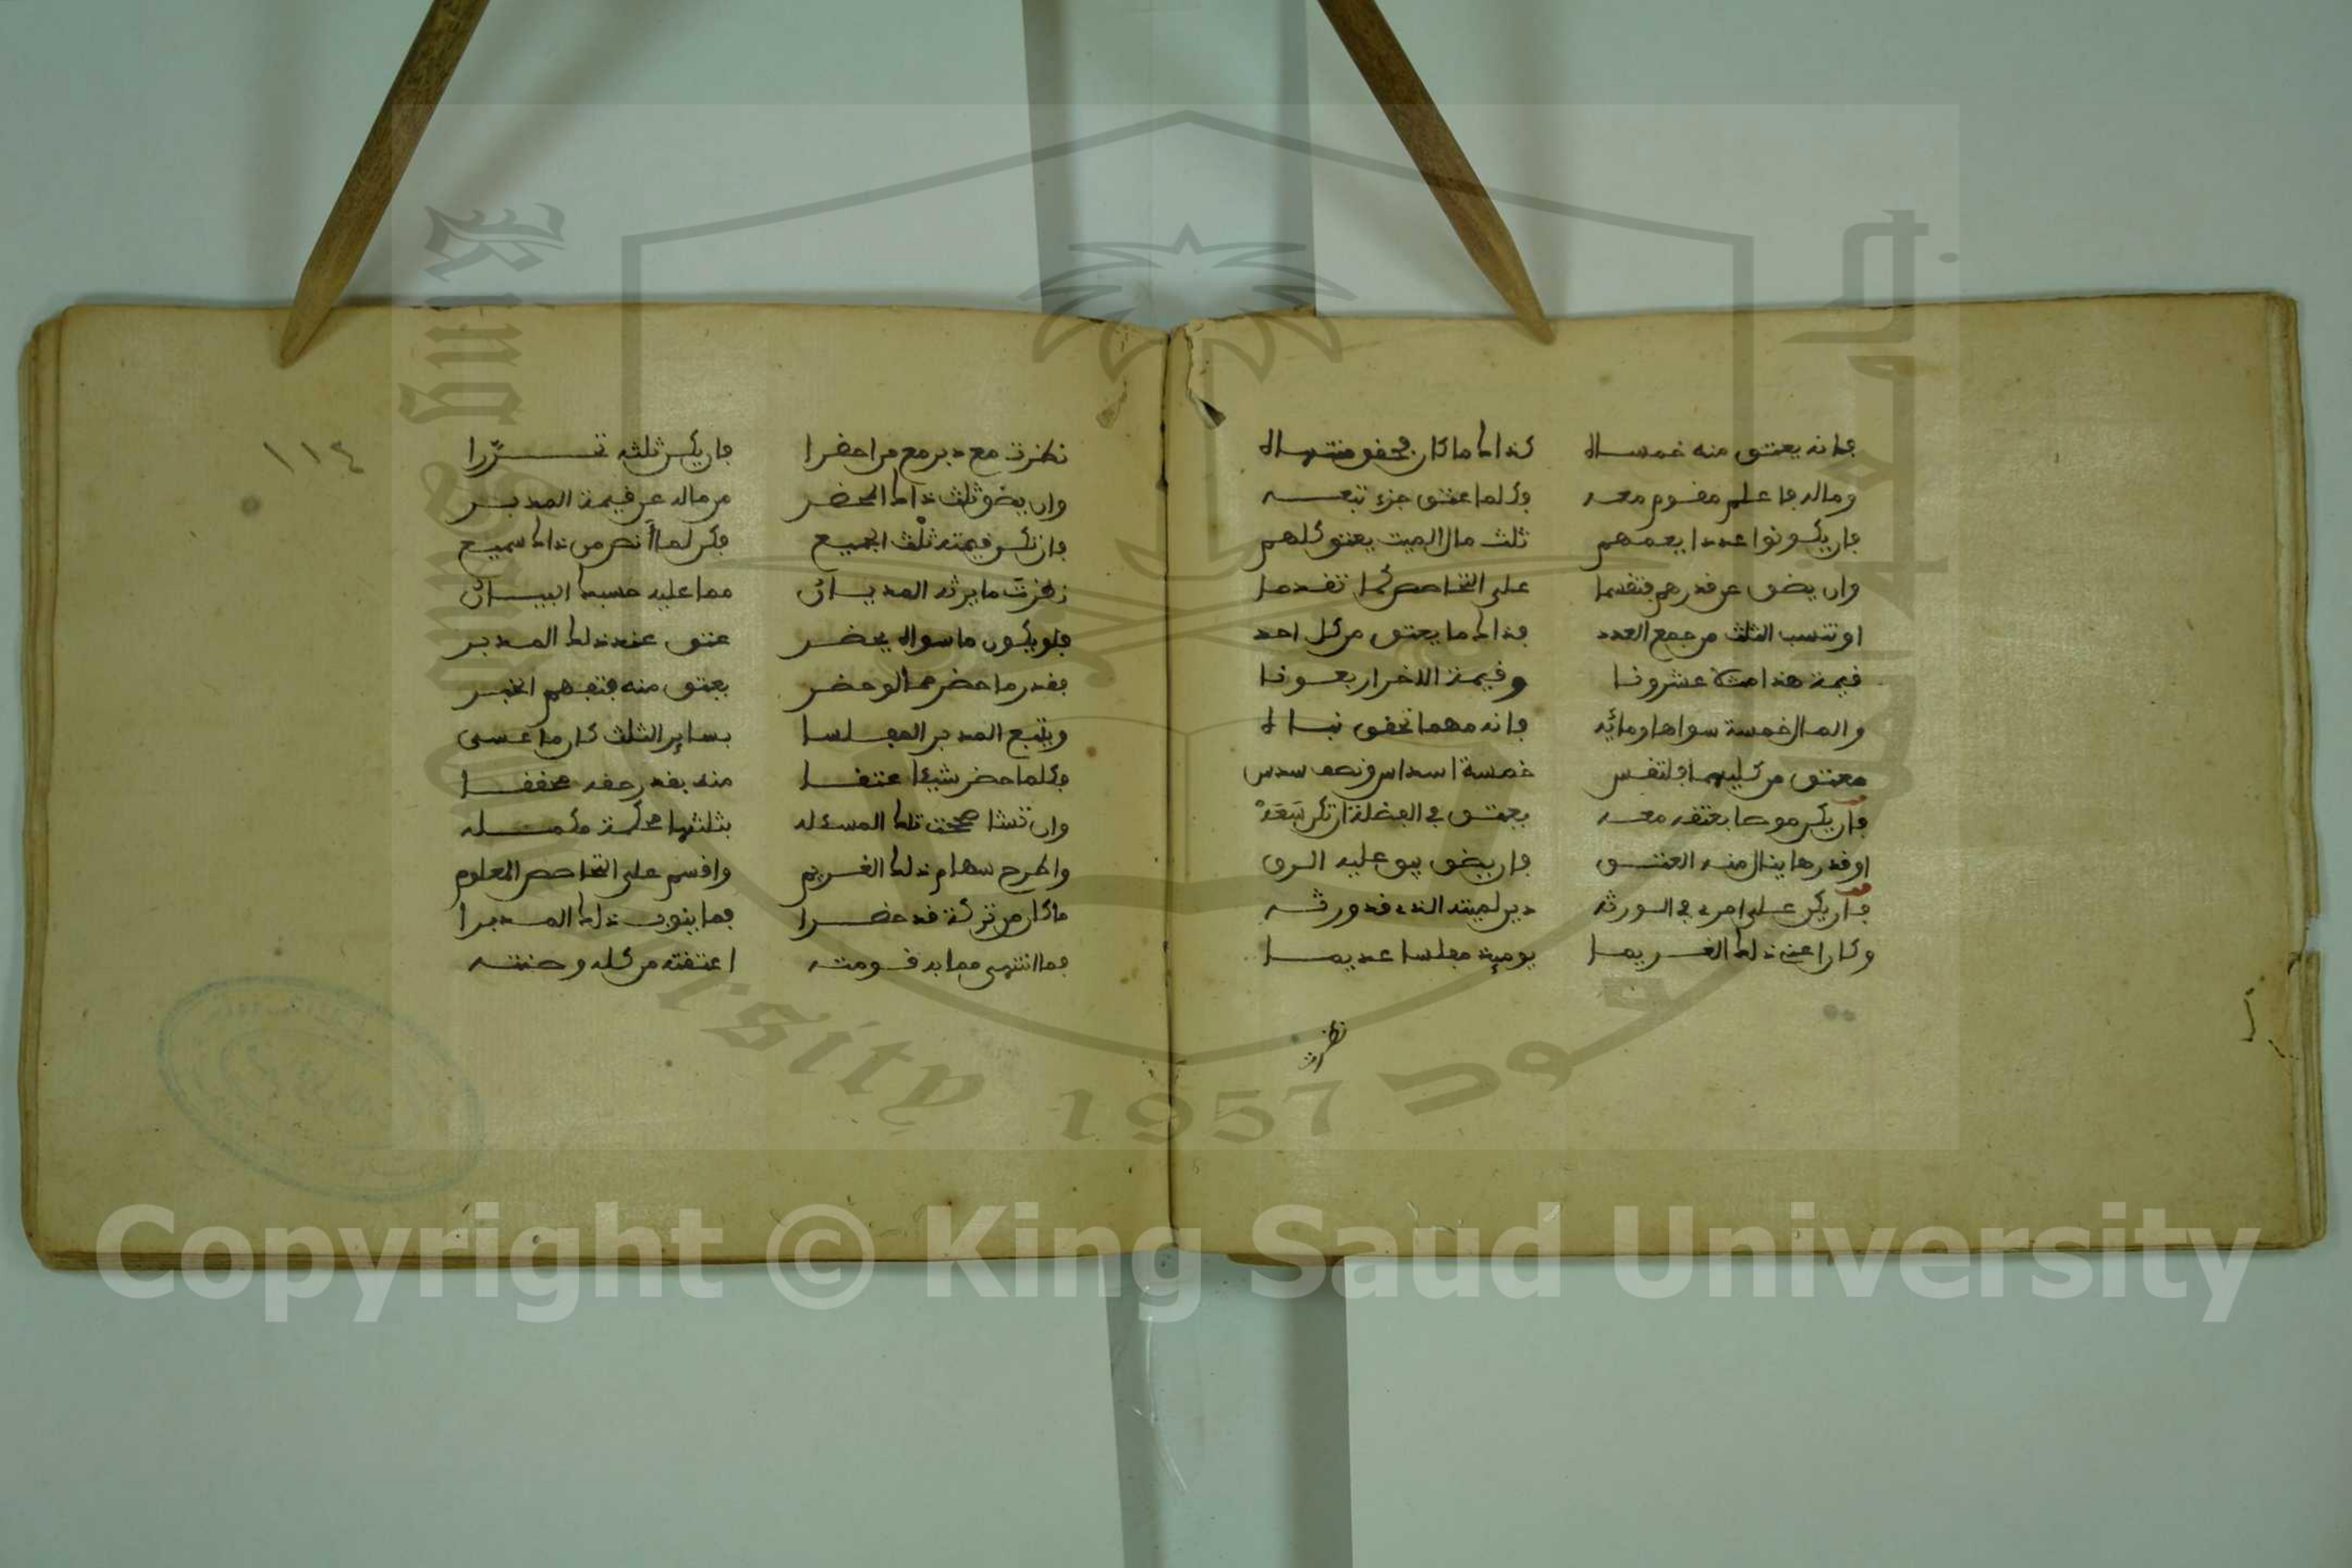 فإنه يعتق منه خمساه كذاك ما كان بحق منتهاه
وماله فاعلم مقوم معه وكلما عتق جزء تبعه
فإن يكونوا عددا يعمهم ثلث مال الميت يعتق كلهم
وان يضق عن قدرهم فتقسما على التحاصص كما تقدما
او تنسب الثلث من جمع العدد فذاك ما يعتق من كل احد
قيمة هذا عشرونا وقيمة الاخر اربعونا
والمال خمسة سواها ومائه فإنه مهما تحقق
معتق من كليهما فلتقس خمسة اسداس ونصف سدس
فإن يكن موصا بعتقه معه يعتق في الفضلة ان تكن سعه
او قدر ما ينال منه العتق فإن يضق يبق عليه الرق
فإن يكن على امرء في الورثه دين لميته الذي قد ورثه
وكان عند ذلك الغريما يومئذ مفلسا عديما
نظرت
١١٤
نظرت مع دين مع من احضرا فإن يكن ثلثه تحررا
وان يضق ثلث ذاك المحضر من ماله عن قيمة المدبر
فإن تكن قيمته ثلث الجميع فكن لما أنص من ذاك سميع
نظرت ما يرثه المديان مما عليه حسبك البيان
فلو يكون ما سواه يحضر عتق عند ذلك المدبر
فقدر ما حضر مما لو حضر يعتق منه فتفهم الخبر
ويتبع المدبر المفلسا بساير الثلث كان ما عسى
وكلما حضر شيئا عتقا منه بقدر حقه محققا
وان تشا صححت تلك المسئله بثلثها محكمة مكمله
واطرح سهام ذلك الغريم واقسم على التحاصص المعلوم
ما كان من تركة قد حضرا فما ينوب ذلك المدبرا
فما انتهى مما به قومته اعتقته من كله وصنته
Copyright © King Saud University
1957